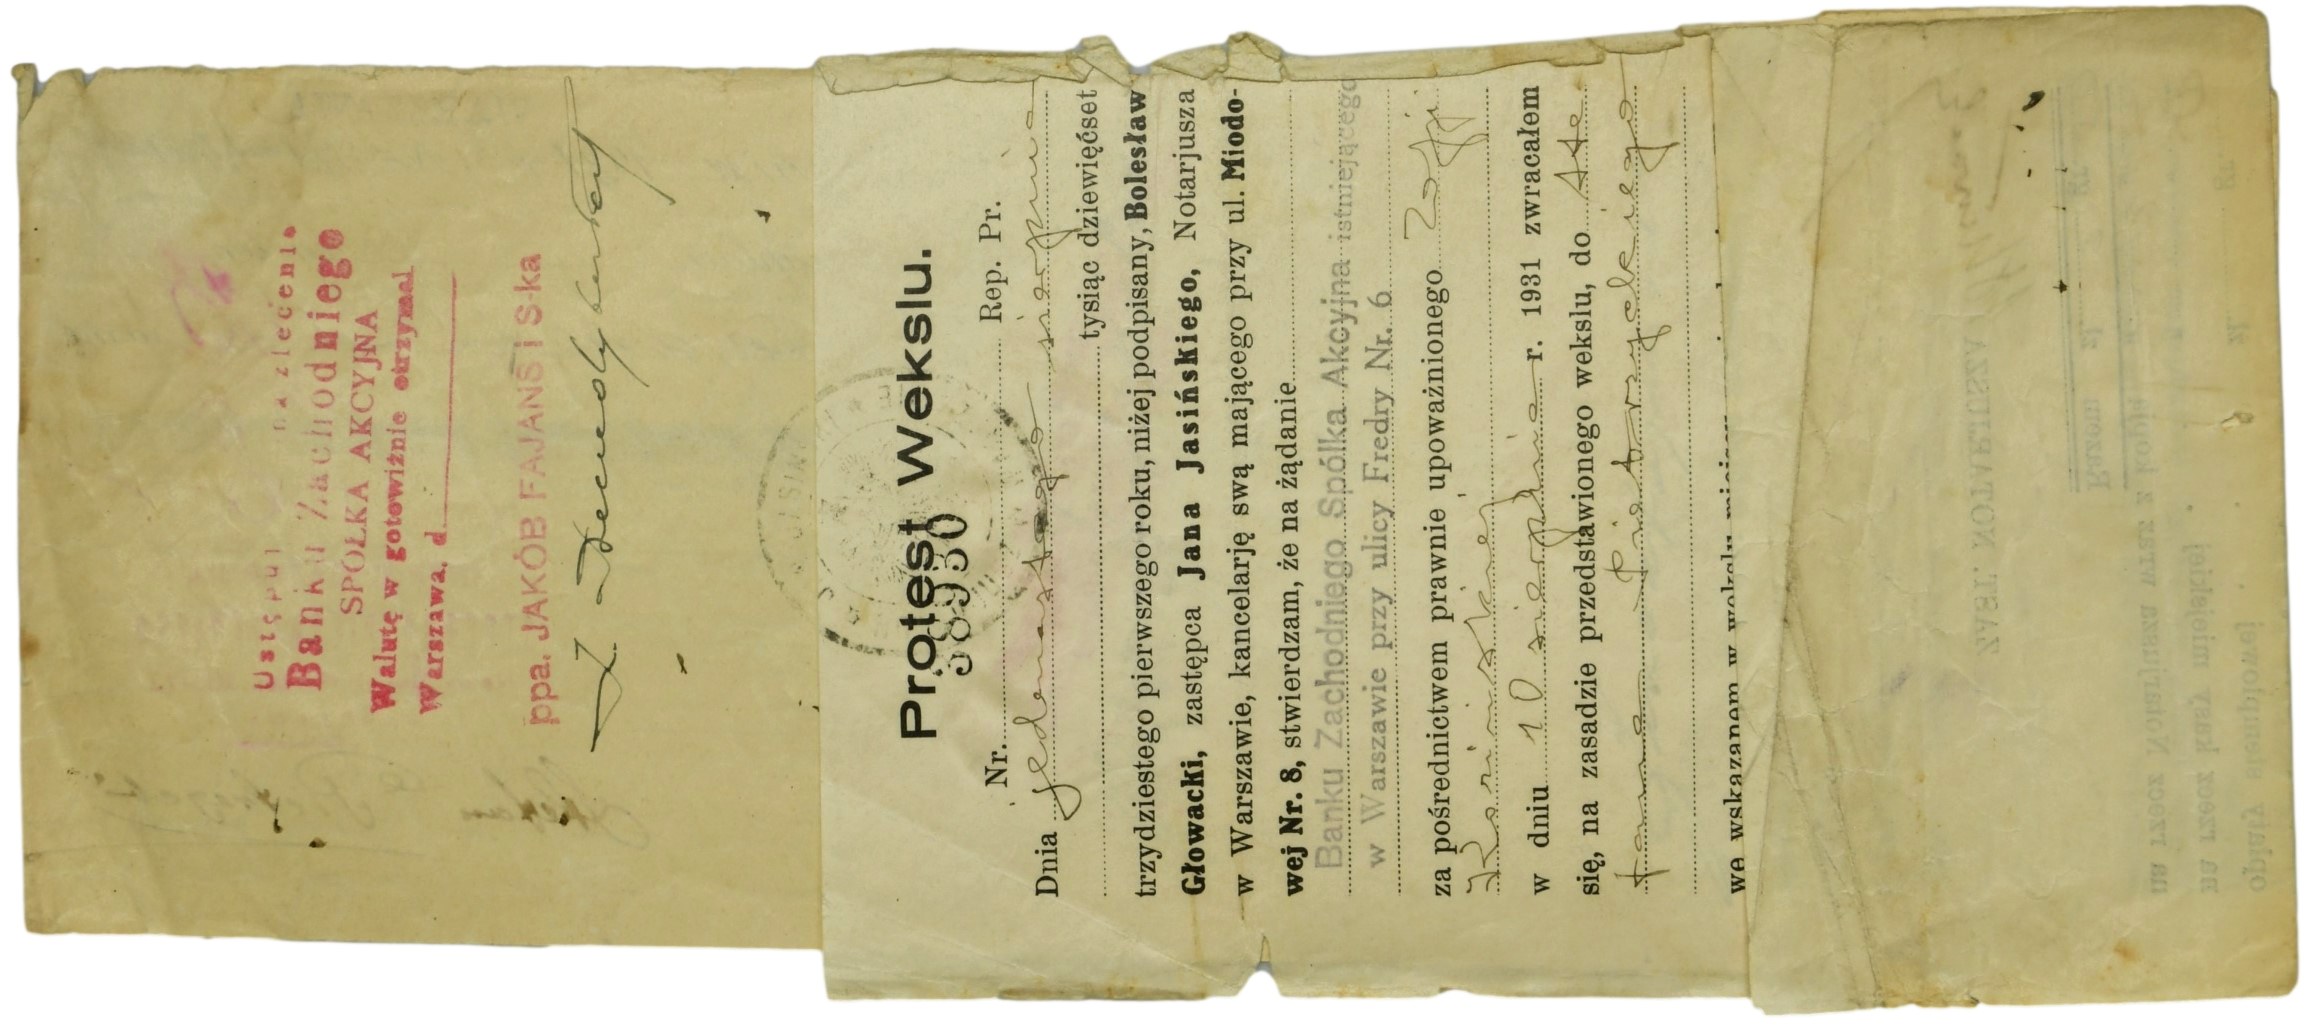 Ustępuj na zlecenie
Banku Zachodniego
SPÓŁKA AKCYJNA
Walutę w gotowiźnie otrzymał
Warszawa, d
ppa. JAKÓB FAJANS i S-ka
Protest Wekslu.
38950
Nr. Rep. Pr.
Dnia jedenastego sierpnia
tysiąc dziewięćset
trzydziestego pierwszego roku, niżej podpisany, Bolesław
Głowacki, zastępca Jana Jasińskiego, Notarjusza
w Warszawie, kancelarję swą mającego przy ul. Miodo-
wej Nr. 8, stwierdzam, że na żądanie
Banku Zachodniego Spółka Akcyjna istniejącego
w Warszawie przy ulicy Fredry Nr. 6
za pośrednictwem prawnie upoważnionego Zofji
w dniu 10 sierpnia r. 1931 zwracałem
się, na zasadzie przedstawionego wekslu, do Ste
fana Piotrzyckiego
we wskazanem w wekslu miejscu
ZAST. NOTARJUSZA
Razem zł. gr.
na rzecz Notarjusza wraz z kopją
na rzecz kasy miejskiej
opłaty stemplowej zł. gr.